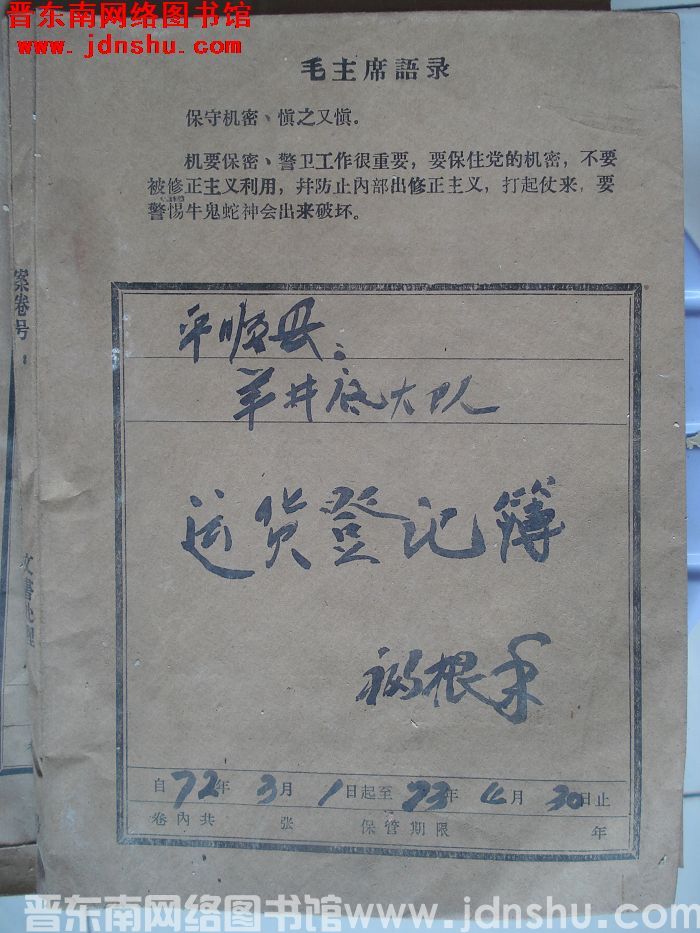 晋东南网络图书馆
www.jdnshu.com
毛主席語录
保守机密、慎之又慎。
机要保密、警卫工作很重要，要保住党的机密，不要
被修正主义利用，幷防止內部出修正主义，打起仗来，要
警惕牛鬼蛇神会出来破坏。
案卷号：
文書处理
平顺县：
羊井底大队
运货登记簿
根
自72年3月1日起至73年4月30日止
卷內共 张 保管期限 年
晋东南网络图书馆 www.jdnshu.com